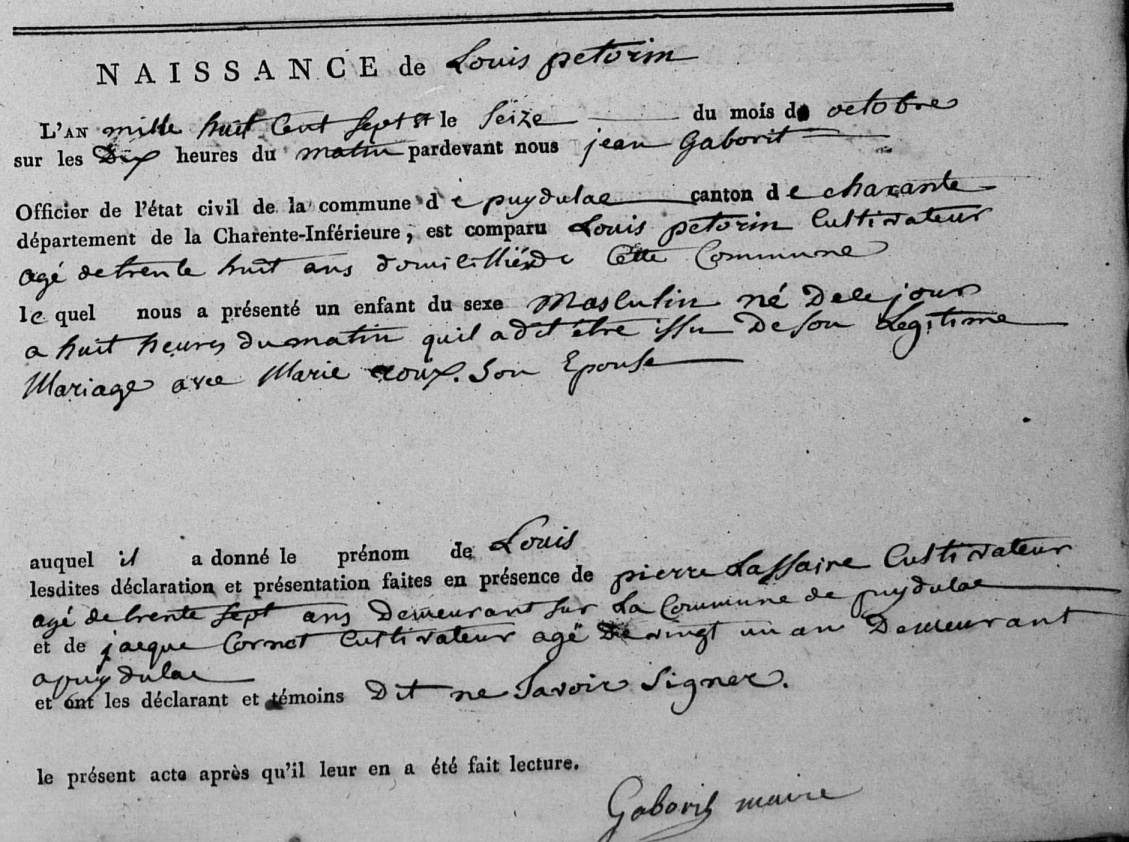 NAISSANCE de Louis petorin
L'AN mille huit Cent sept et le Seize du mois de octobre
sur les Dix heures du matin pardevant nous jean Gaborit
Officier de l'état civil de la commune d e puydulac canton d e charante
département de la Charente-Inférieure, est comparu Louis petorin Cultivateur
agé de trente huit ans domicillié de Cette Commune
le quel nous a présenté un enfant du sexe Masculin né De ce jour
a huit heures du matin quil a dit être issu De son Légitime
Mariage avec Marie roux. Son Epouse
auquel il a donné le prénom de Louis
lesdites déclaration et présentation faites en présence de pierre Lassaire Cultivateur
agé de trente sept ans Demeurant sur La Commune de puydulac
et de jacque Cornet Cultivateur agé De vingt un an Demeurant
a puydulac
et ont les déclarant et témoins Dit ne Savoir Signer.
le présent acte après qu'il leur en a été fait lecture.
Gaborit maire